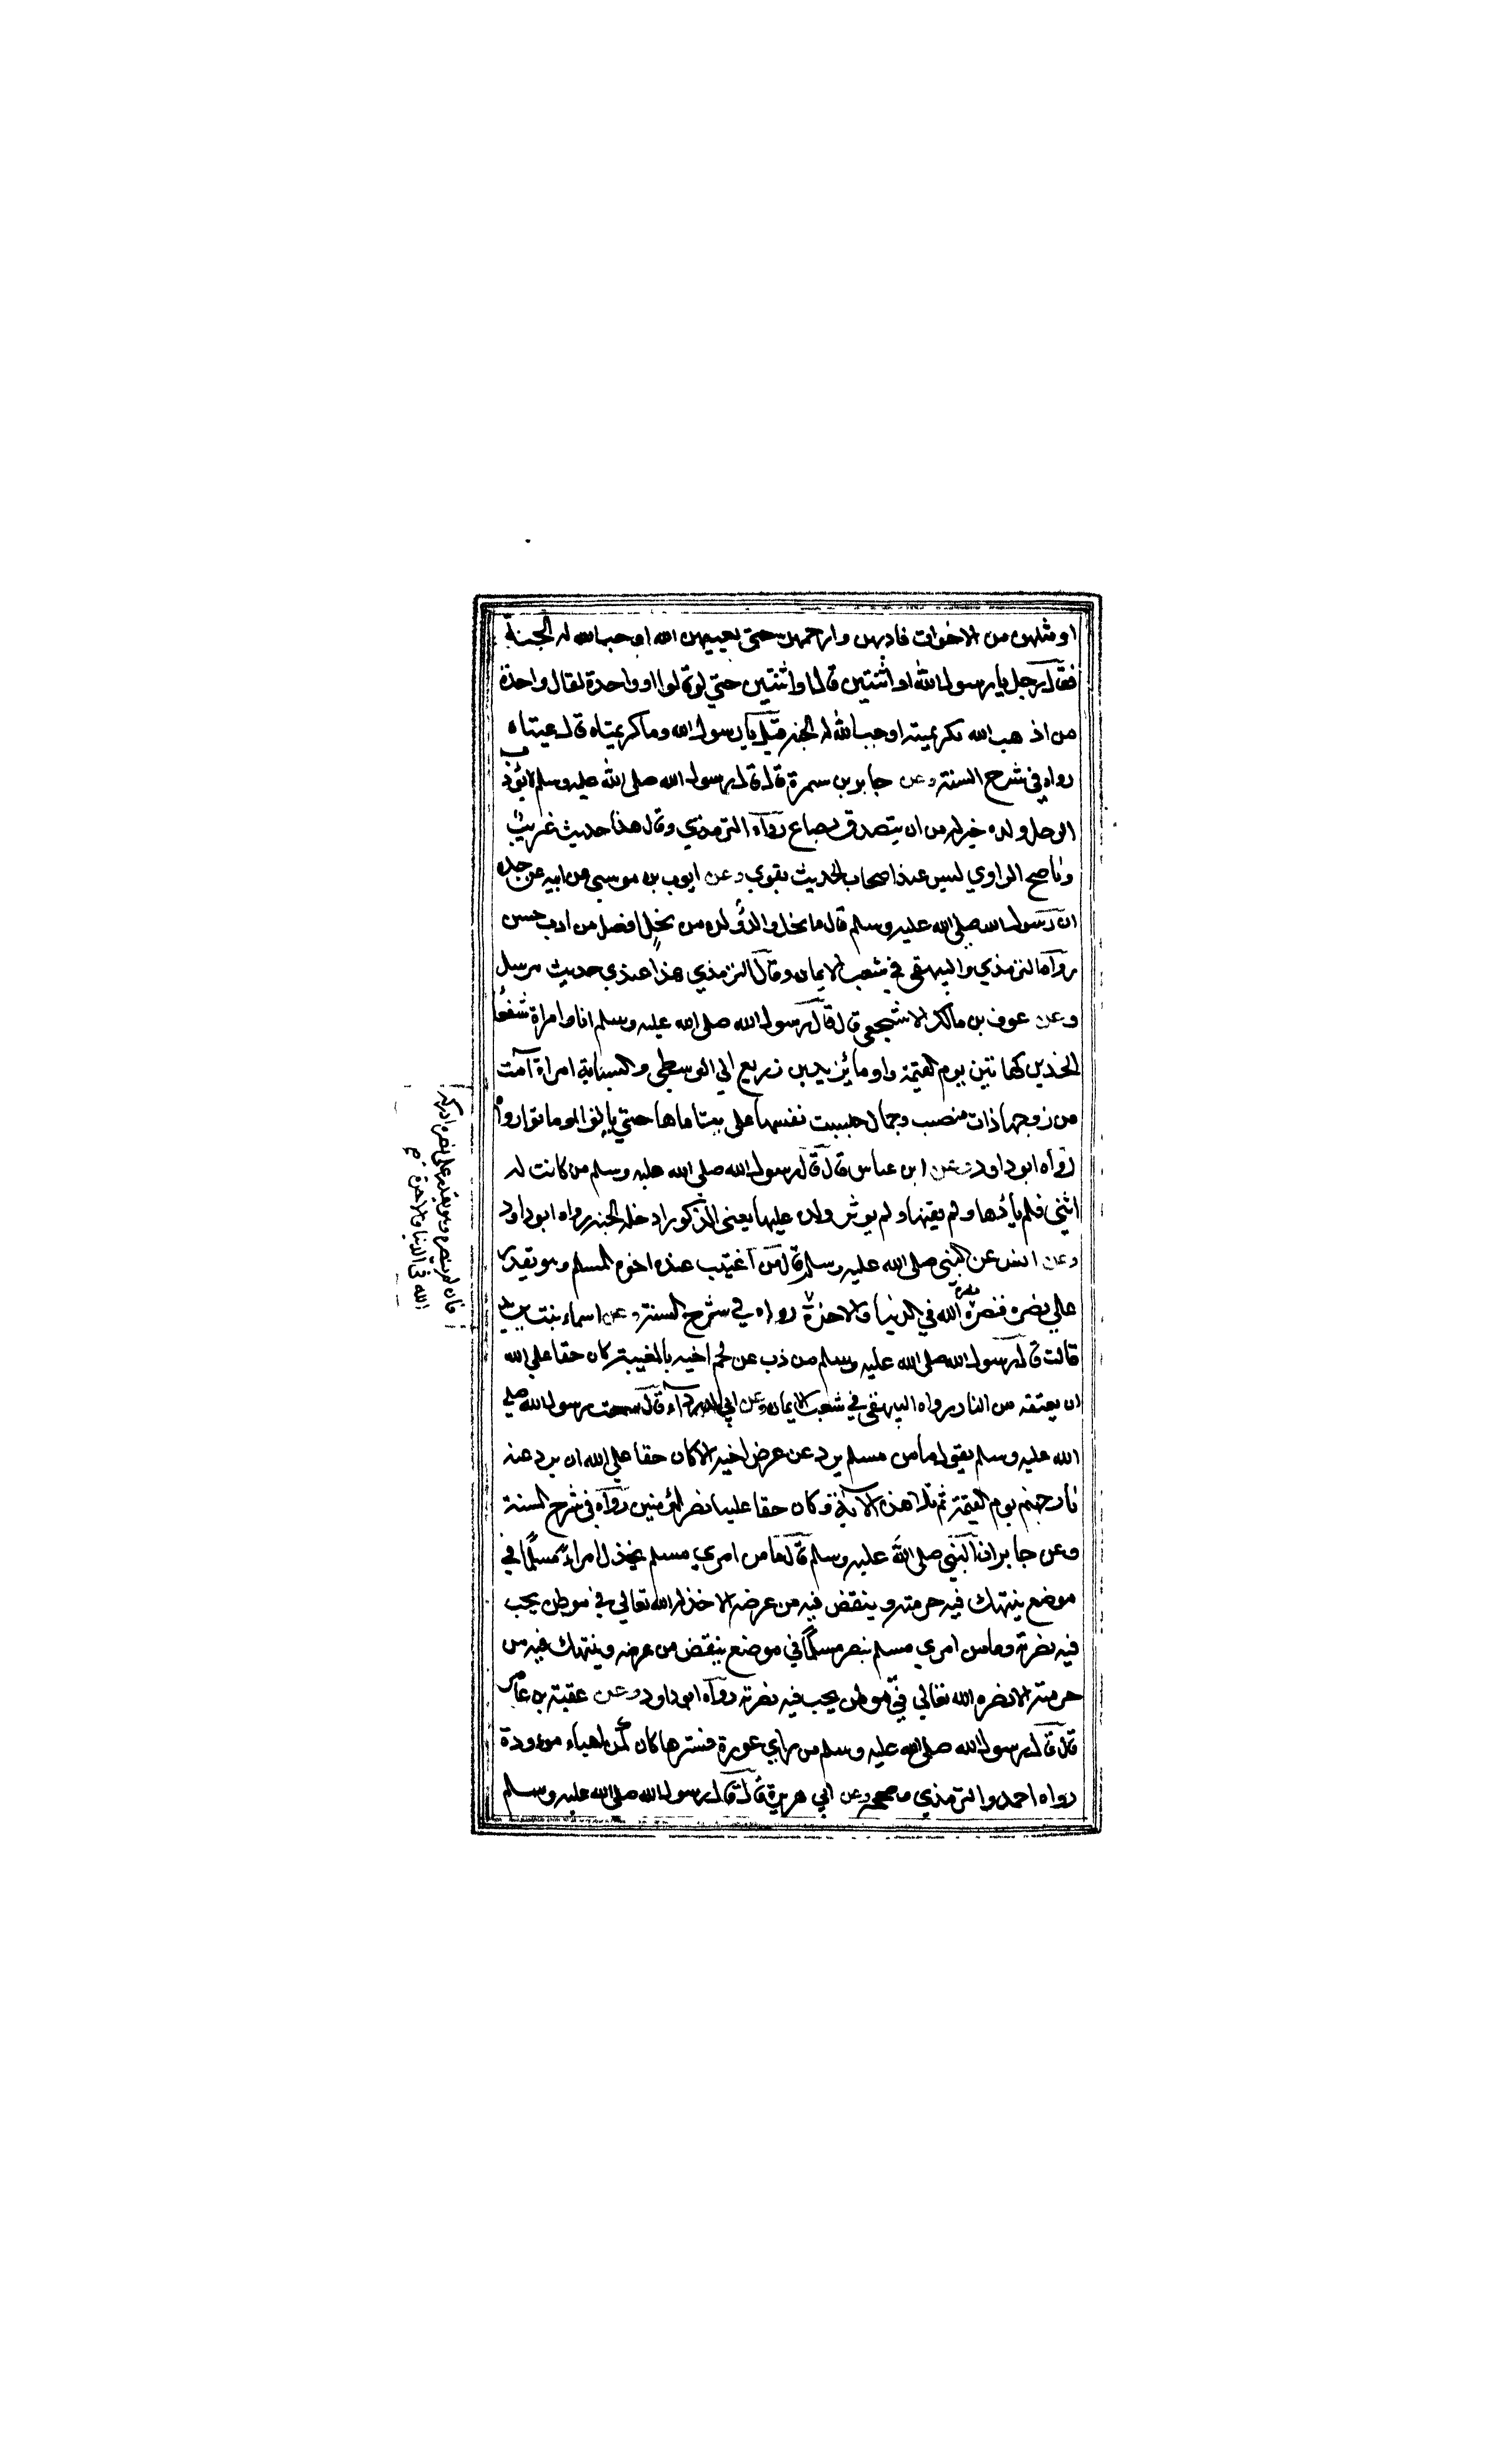 او مثلهن من الاخوات فادبهن وارحمهن حتى يغنيهن الله اوجب الله له الجنة
فقال رجل يا رسول الله او اثنتين قال او اثنتين حتى لو قالوا او واحدة لقال واحدة
من اذهب الله بكريمته اوجب الله له الجنة قيل يا رسول الله وما كريمتاه قال عيناه
رواه في شرح السنة وعن جابر بن سمرة قال قال رسول الله صلى الله عليه وسلم لان يؤدب
الرجل ولده خير له من ان يتصدق بصاع رواه الترمذي وقال هذا حديث غريب
وناصح الراوي ليس عند اصحاب الحديث بقوي وعن ايوب بن موسى عن ابيه عن جده
ان رسول الله صلى الله عليه وسلم قال ما نحل والد ولده من نحل افضل من ادب حسن
رواه الترمذي والبيهقي في شعب الايمان وقال الترمذي هذا عندي حديث مرسل
وعن عوف بن مالك الاشجعي قال قال رسول الله صلى الله عليه وسلم انا وامراة سفعا
الخدين كهاتين يوم القيمة واومأ يزيد بن زريع الي الوسطى والسبابة امراة آمت
من زوجها ذات منصب وجمال حبست نفسها على يتاماها حتي بانوا او ماتوا رواه
رواه ابو داود وعن ابن عباس قال قال رسول الله صلى الله عليه وسلم من كانت له
انثى فلم يأدها ولم يهنها ولم يوثر ولده عليها يعني الذكور ادخله الجنة رواه ابو داود
وعن انس عن النبي صلى الله عليه وسلم قال من اغتيب عنده اخوه المسلم وهو يقدر
علي نصره فنصره نصره الله في الدنيا والاخرة رواه في شرح السنة وعن اسماء بنت يزيد
قالت قال رسول الله صلى الله عليه وسلم من ذب عن لحم اخيه بالمغيبة كان حقا علي الله
ان يعتقه من النار رواه البيهقي في شعب الايمان وعن ابي الدرداء قال سمعت رسول الله صلى
الله عليه وسلم يقول ما من مسلم يرد عن عرض اخيه الا كان حقا علي الله ان يرد عنه
نار جهنم يوم القيمة ثم تلا هذه الآية وكان حقا علينا نصر المؤمنين رواه في شرح السنة
وعن جابر ان النبي صلى الله عليه وسلم قال ما من امرئ مسلم يخذل امراء مسلما في
موضع ينتهك فيه حرمته وينتقص فيه من عرضه الا خذله الله تعالي في موطن يحب
فيه نصرته وما من امرئ مسلم ينصر مسلما في موضع ينتقص من عرضه وينتهك فيه من
حرمته الا نصره الله تعالي في موطن يحب فيه نصرته رواه ابو داود وعن عقبة بن عامر
قال قال رسول الله صلى الله عليه وسلم من راي عورة فسترها كان كمن احياء موءودة
رواه احمد والترمذي وصححه وعن ابي هريرة قال قال رسول الله صلى الله عليه وسلم
فان لم ينصره وهو يقدر على نصره ادركه
الله في الدنيا والاخرة